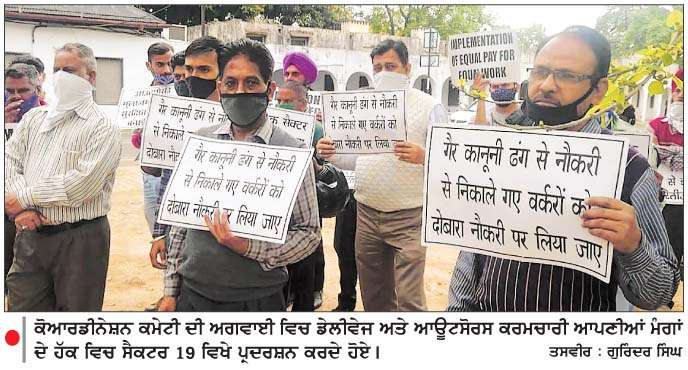 IMPLEMENTATION
OF EQUAL PAY
FOR
EQUAL WORK
गैर कानूनी ढंग से नौकरी
से निकाले गए वर्करों को
दोबारा नौकरी पर लिया जाए
गैर कानूनी ढंग से नौकरी
से निकाले गए वर्करों को
दोबारा नौकरी पर लिया जाए
गैर कानूनी ढंग से नौकरी
से निकाले गए वर्करों को
दोबारा नौकरी पर लिया जाए
गैर कानूनी
से निकाले
दोबारा नौ
सैक्टर
ਕੋਆਰਡੀਨੇਸ਼ਨ ਕਮੇਟੀ ਦੀ ਅਗਵਾਈ ਵਿਚ ਡੇਲੀਵੇਜ ਅਤੇ ਆਊਟਸੋਰਸ ਕਰਮਚਾਰੀ ਆਪਣੀਆਂ ਮੰਗਾਂ
ਦੇ ਹੱਕ ਵਿਚ ਸੈਕਟਰ 19 ਵਿਖੇ ਪ੍ਰਦਰਸ਼ਨ ਕਰਦੇ ਹੋਏ।
ਤਸਵੀਰ : ਗੁਰਿੰਦਰ ਸਿੰਘ